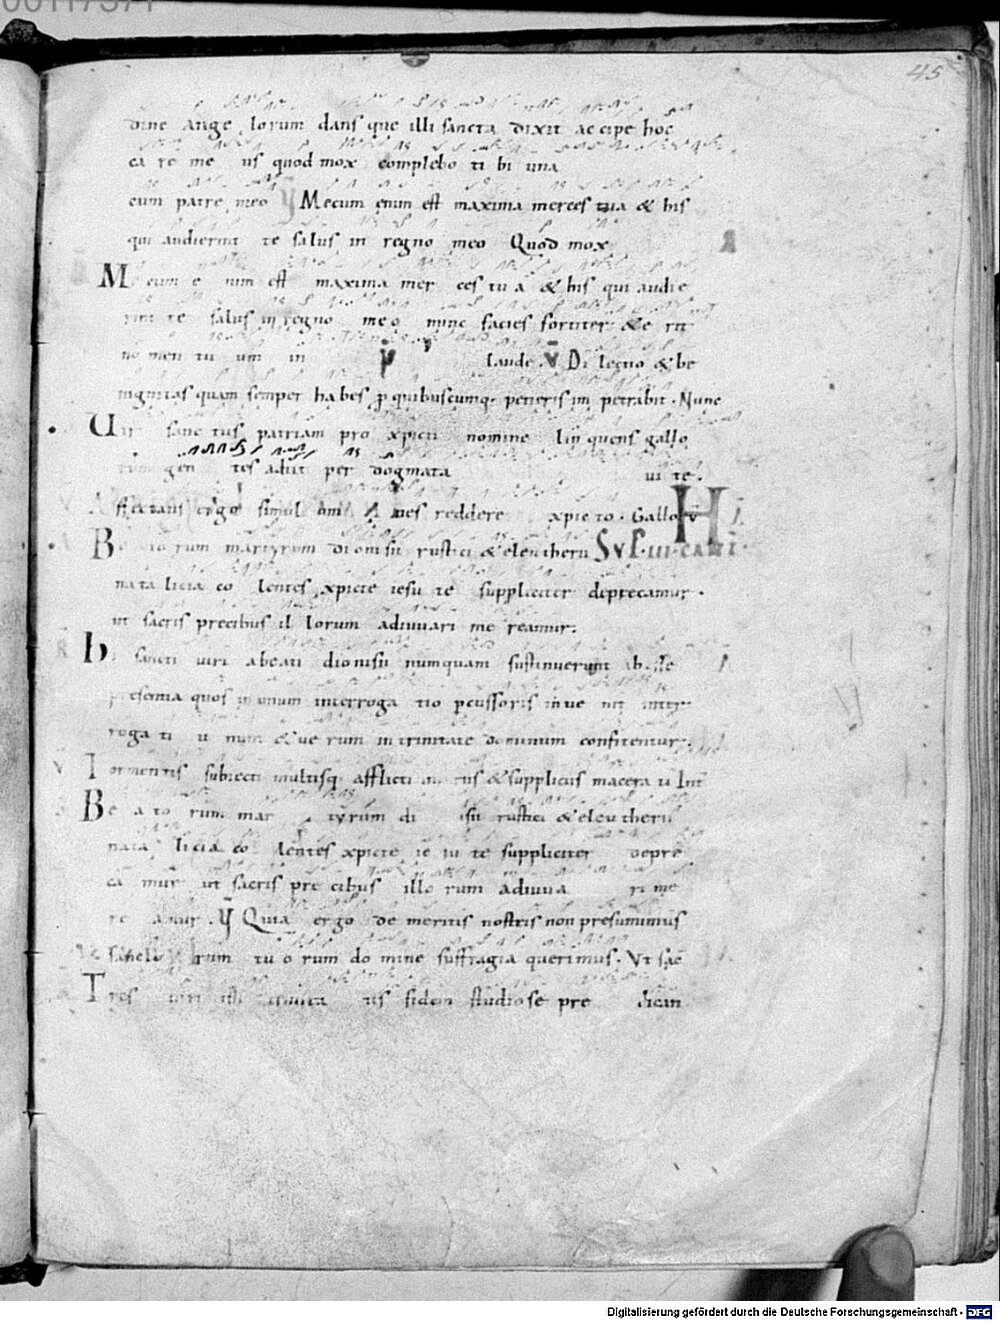 00117371
45
dine ange lorum dans que illi sancta dixit ac cipe hoc
ca re me us quod mox complebo ti bi una
cum patre meo V Mecum enim est maxima merces tua & his
qui audierint te salus in regno meo Quod mox
Mecum e nim est maxima mer ces tu a & his qui audie
rint te salus in regno meo nunc facies fortiter & e rit
no men tu um in laude. V Di lectio & be
nignitas quam semper habes p quibuscumq. petieris im petrabit. Nunc
Uir sanc tus patriam pro xpicti nomine lin quens gallo
rum gen tes adiit per dogmata ui te.
Affectans ergo simul omnes reddere xpic to. Gallorū
Beato rum martyrum dionisii rustici & eleutherii SVP
nata licia co lentes xpicte iesu te suppliciter deprecamur.
ut sacris precibus il lorum adiuuari me reamur.
hi sancti uiri abeati dionisii numquam sustinuerunt ab esse
presentia quos in unum interroga tio pcussoris inue nit inter
roga ti u num & ue rum in trinitate dominum confitentur.
V Tormentis subiecti multisq. afflicti & suppliciis macera ti Int
Be a to rum mar tyrum di isii rustici & eleu therii
nata licia co lentes xpicte ie su te suppliciter depre
ca mur ut sacris pre cibus illo rum adiuua ri me
re amur. V Quia ergo de meritis nostris non presumimus
rum tu o rum do mine suffragia querimus. Vt sac
Tres uiri isti fidem studiose pre dican
Digitalisierung gefördert durch die Deutsche Forschungsgemeinschaft - DFG